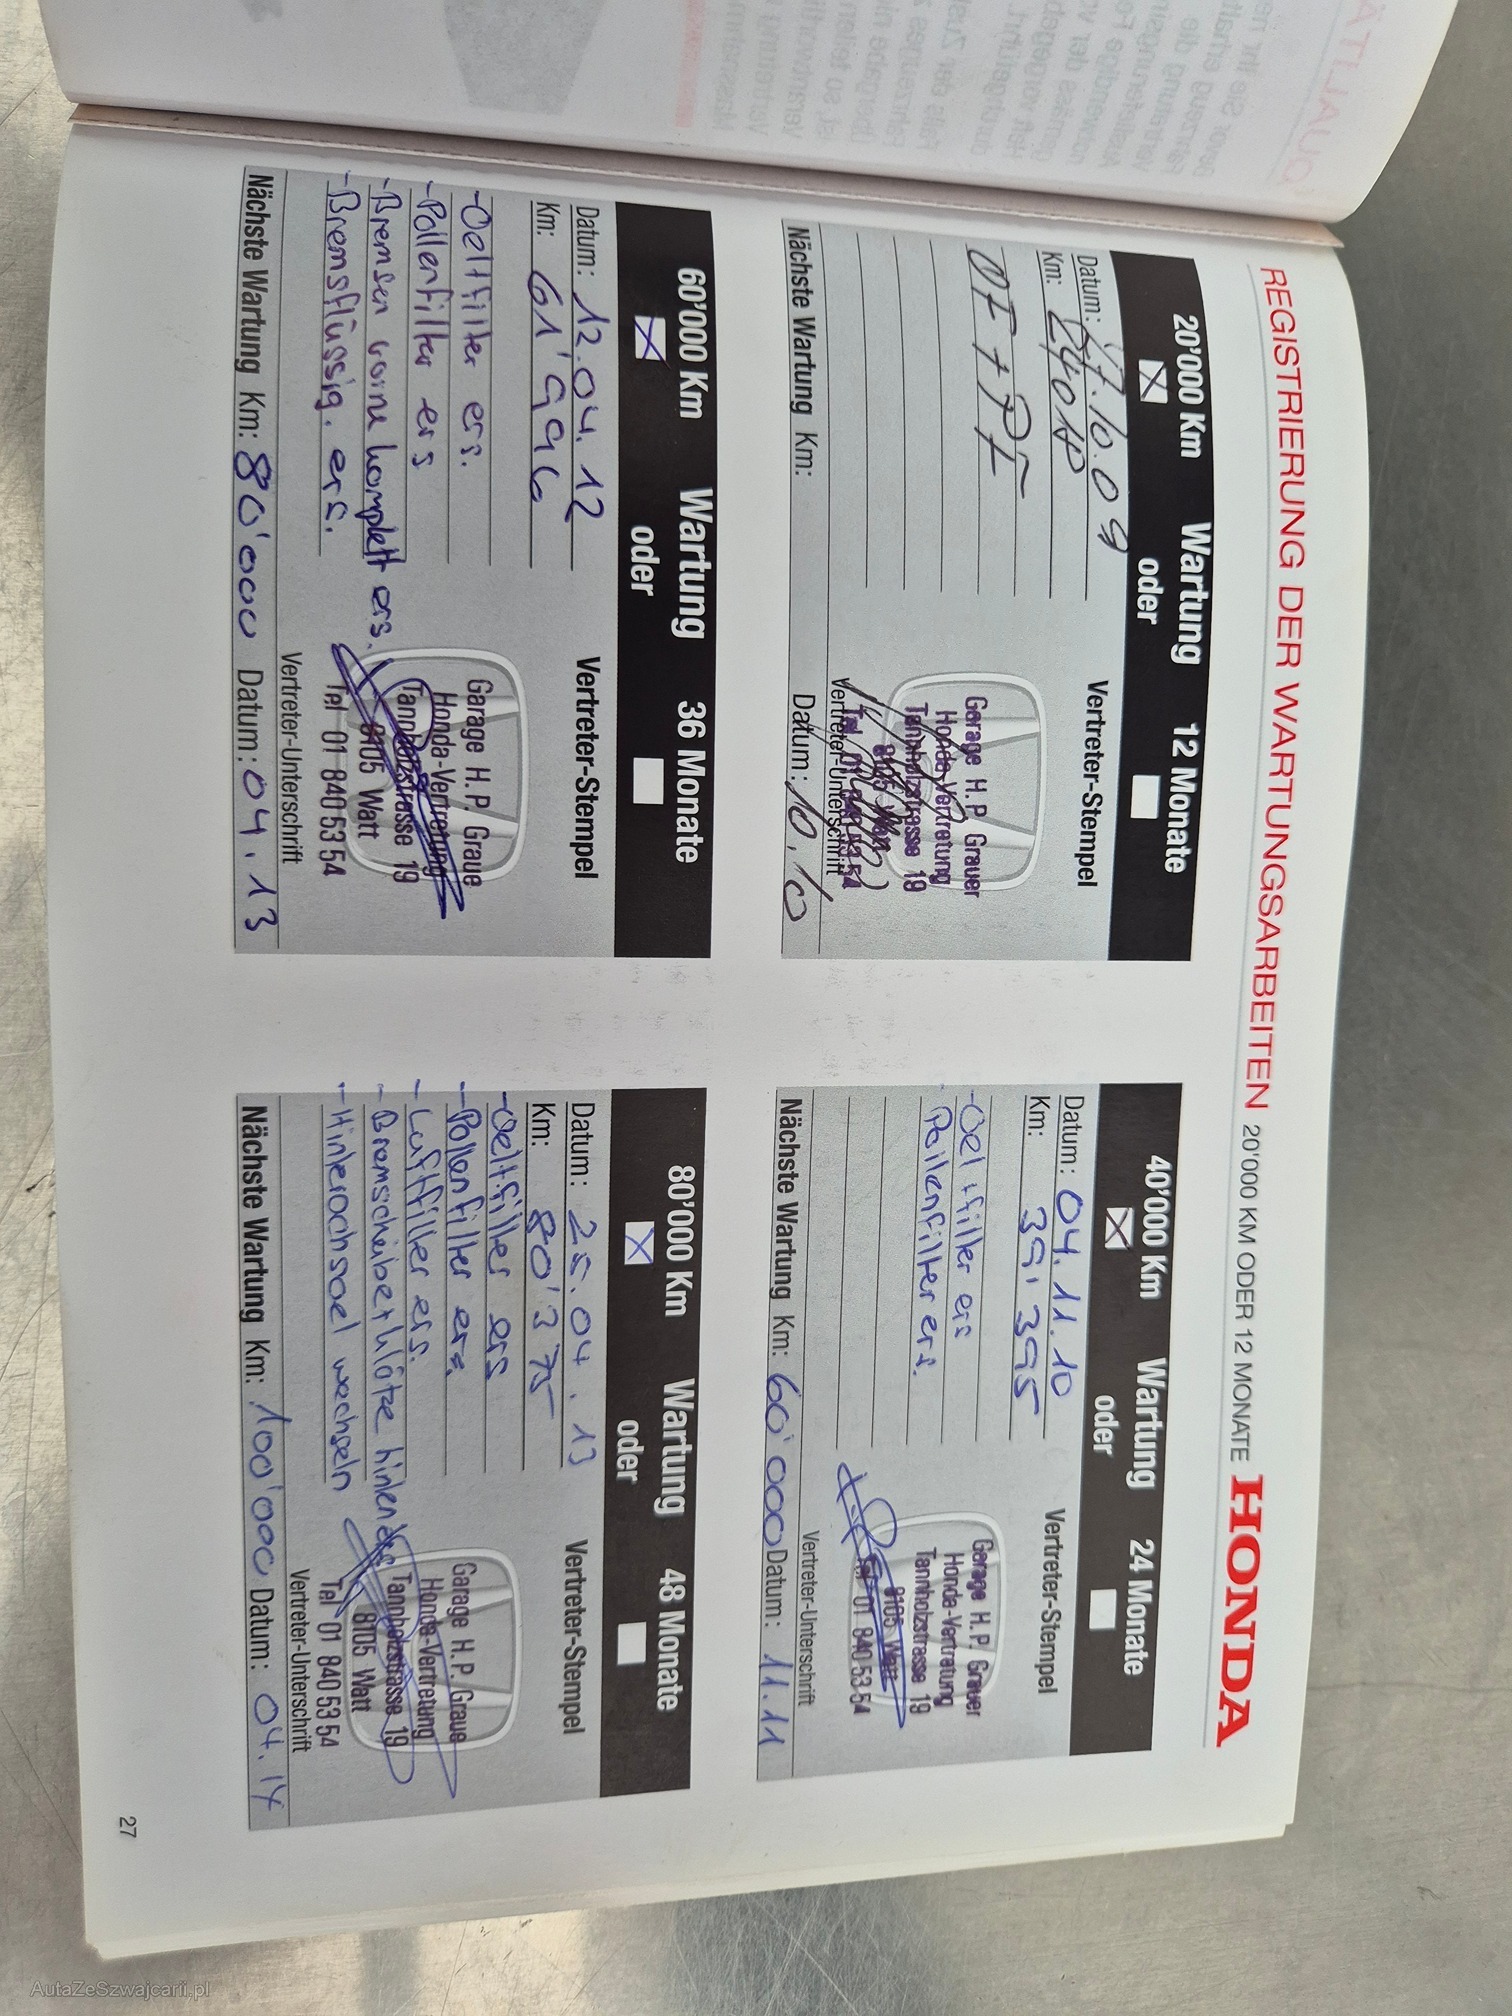 REGISTRIERUNG DER WARTUNGSARBEITEN 20'000 KM ODER 12 MONATE HONDA
20'000 Km Wartung 12 Monate
oder
Datum: 17.10.09
Vertreter-Stempel
Km: 24018
Garage H.P. Grauer
Honda-Vertretung
Tannholzstrasse 19
8105 Watt
Tel 01 840 53 54
Vertreter-Unterschrift
Nächste Wartung Km: Datum: 10.10
40'000 Km Wartung 24 Monate
oder
Datum: 04.11.10
Vertreter-Stempel
Km: 39'395
- Oel + filter ers
- Pollenfilter ers.
Garage H.P. Grauer
Honda-Vertretung
Tannholzstrasse 19
8105 Watt
Tel 01 840 53 54
Vertreter-Unterschrift
Nächste Wartung Km: 60'000 Datum: 11.11
60'000 Km Wartung 36 Monate
oder
Datum: 12.04.12
Vertreter-Stempel
Km: 61'996
- Oel+filter ers.
- Pollenfilter ers
- Bremsen vorne komplett ers.
- Bremsflüssig. ers.
Garage H.P. Graue
Honda-Vertretung
Tannholzstrasse 19
8105 Watt
Tel 01 840 53 54
Vertreter-Unterschrift
Nächste Wartung Km: 80'000 Datum: 04.13
80'000 Km Wartung 48 Monate
oder
Datum: 25.04.13
Vertreter-Stempel
Km: 80'375
- Oel+filter ers
- Pollenfilter ers.
- Luftfilter ers.
- Bremscheiben + klötze hinten ers
- Hinterachsoel wechseln
Garage H.P. Graue
Honda-Vertretung
Tannholzstrasse 19
8105 Watt
Tel 01 840 53 54
Vertreter-Unterschrift
Nächste Wartung Km: 100'000 Datum: 04.14
27
AutaZeSzwajcarii.pl